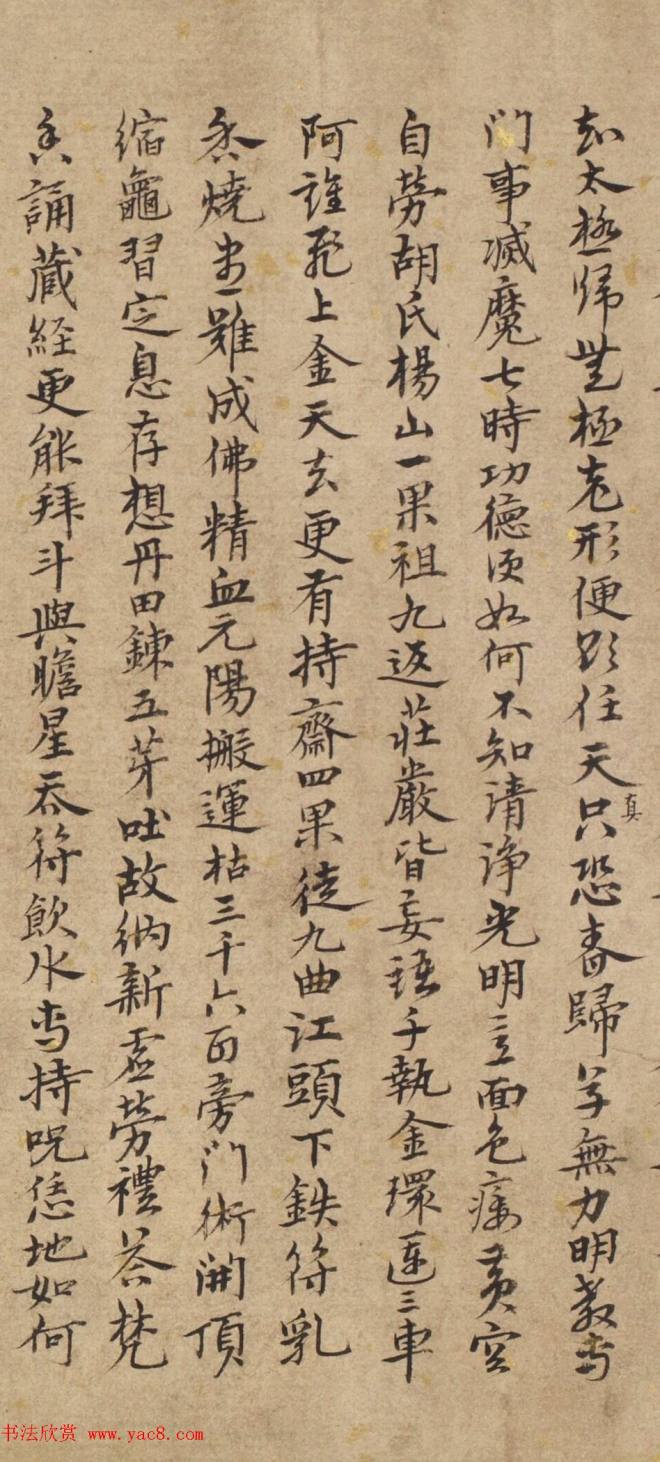 知太極归無極形便任天真只恐春歸草無力明教專
门事滅魔七時功德湏如何不知清浄光明意面色痿黄空
自勞胡氏楊山一果祖九返莊嚴皆妄語手執金環運三車
阿誰飛上金天去更有持齋四果徒九曲江頭下鉄符乳
香燒盡難成佛精血元陽搬運枯三千六百旁门術開頂
缩龜習定息存想丹田鍊五芽吐故納新虚勞禮荅梵
誦藏経更能拜斗與瞻星吞符飲水專持呪恁地如何
书法欣赏 www.yac8.com